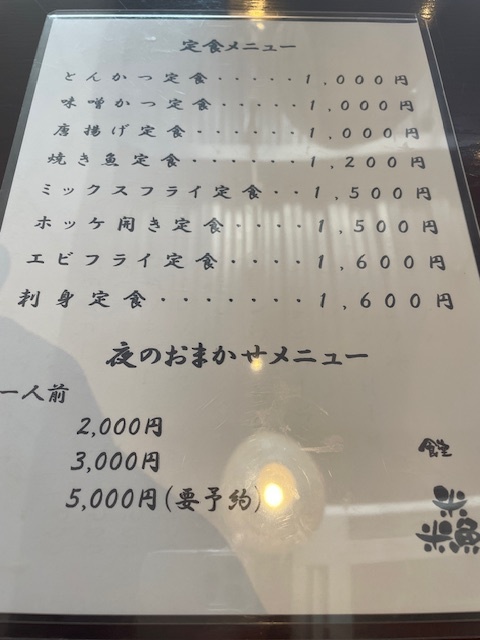 定食メニュー
とんかつ定食・・・・・1,000円
味噌かつ定食・・・・・1,000円
唐揚げ定食・・・・・・1,000円
焼き魚定食・・・・・・1,200円
ミックスフライ定食・・1,500円
ホッケ開き定食・・・・1,500円
エビフライ定食・・・・1,600円
刺身定食・・・・・・・1,600円
夜のおまかせメニュー
一人前
2,000円
3,000円
5,000円(要予約)
食堂
米
米魚